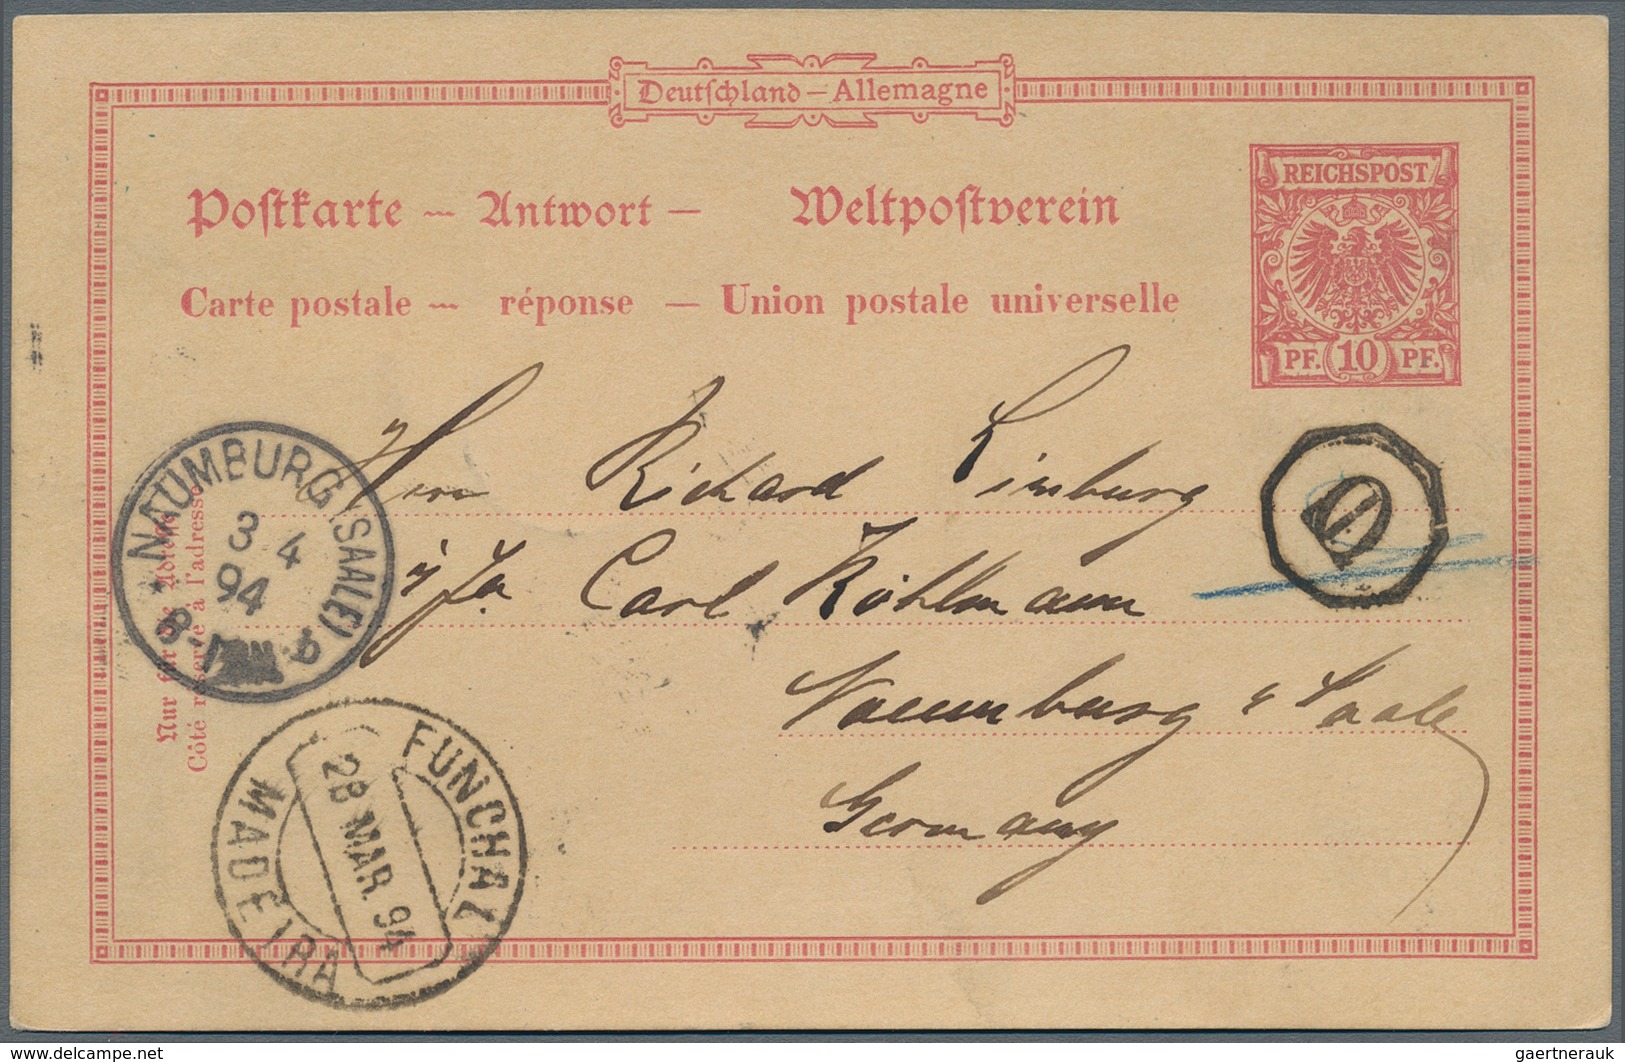 Deutſchland – Allemagne
REICHSPOST
PF. 10 PF.
Poſtkarte — Antwort — Weltpoſtverein
Carte postale — réponse — Union postale universelle
Herrn Richard Limburg
Carl Köhlmann
Naumburg a Saale
Germany
NAUMBURG (SAALE)
3 4
94
8-
Nur für die Adreſſe
Côté réservé à l'adresse
FUNCHAL
28 MAR. 94
MADEIRA
gaertnerauk